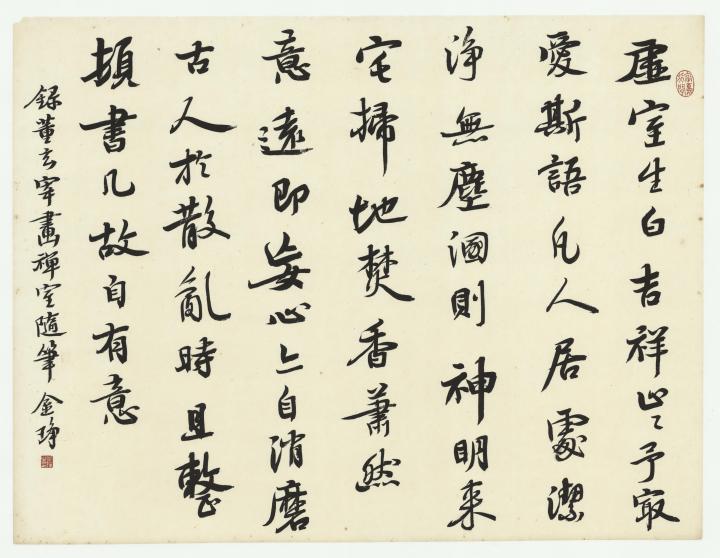 虛室生白吉祥止〻予㝡
愛斯語凡人居處潔
淨無塵溷則神明來
宅掃地焚香蕭然
意遠即妄心亦自消磨
古人於散亂時且整
頓書几故自有意
錄董玄宰畫禪室隨筆 金琤